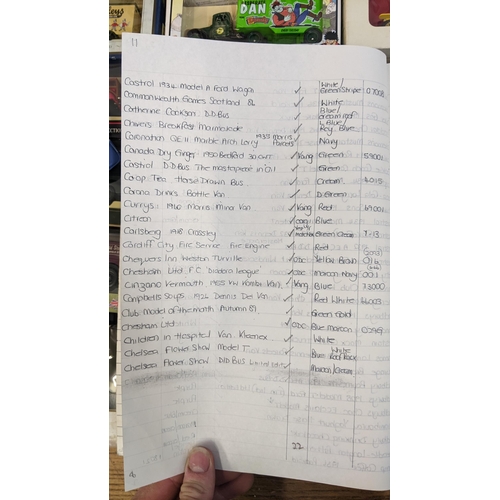 DAN
11
Castrol 1934 Model A Ford Wagon ✓ White/ Green Stripe 07008
Commonwealth Games Scotland 86 ✓ White
Catherine Cookson D.D Bus ✓ Blue/ cream roof
Chivers Breakfast Marmalade ✓ L Blue/ Roy. Blue
Coronation QE II Marble Arch Lorry 1935 Morris Parcels ✓ Navy
Canada Dry Ginger 1950 Bedford 30 cwt ✓ Vang Green 59001
Castrol D.D Bus The Masterpiece in Oil ✓ Green
Co-op Tea Horse Drawn Bus ✓ Cream 4015
Corona Drinks Bottle Van ✓ D. Green
Currys 1960 Morris Mina Van ✓ Vang Red 49001
Citreon ✓ Blue
Carlsberg 1918 Crossley ✓ Matchbox Green Cream Y-13
Cardiff City Fire Service Fire Engine ✓ Red
Chequers Inn Weston Turville ✓ ODC Yellow Brain
Chesham Ltd F.C. Diadora league ✓ ODC Maroon Navy 001
Cinzano Vermouth 1955 VW Kombi Van ✓ Vang Blue 73000
Campbells Soups 1926 Dennis Del Van ✓ Red White 66003
Club Model of the month Autumn 89 ✓ Green Gold
Chesham Ltd ✓ ODC Blue Maroon
Children in Hospital Van Kleenex ✓ White
Chelsea Flower Show Model T ✓ Blue White Roof
Chelsea Flower Show D/D Bus Limited Edit ✓ Maroon/Cream
22